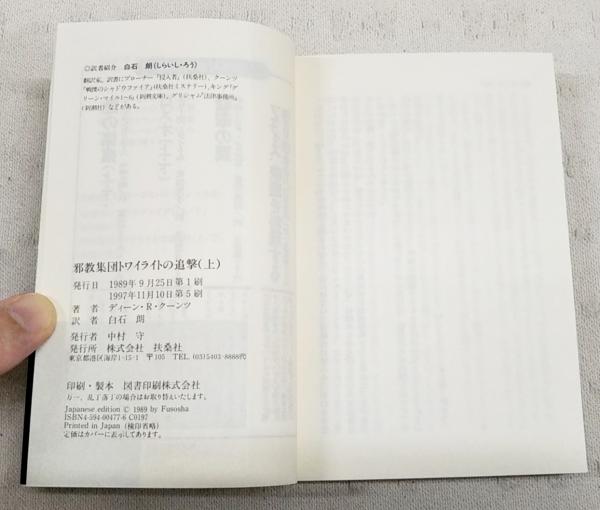 ◎訳者紹介 白石 朗(しらいし・ろう)
翻訳家。訳書にブローナー『侵入者』(扶桑社)、クーンツ
『戦慄のシャドウファイア』(扶桑社ミステリー)、キング『グ
リーン・マイル1〜6』(新潮文庫)、グリシャム『法律事務所』
(新潮社)などがある。
邪教集団トワイライトの追撃(上)
発行日 1989年9月25日第1刷
1997年11月10日第5刷
著者 ディーン・R・クーンツ
訳者 白石 朗
発行者 中村 守
発行所 株式会社 扶桑社
東京都港区海岸1-15-1 〒105 TEL.(03)5403-8888代
印刷・製本 図書印刷株式会社
万一、乱丁落丁の場合はお取り替えいたします。
Japanese edition © 1989 by Fusosha
ISBN4-594-00477-6 C0197
Printed in Japan (検印省略)
定価はカバーに表示してあります。